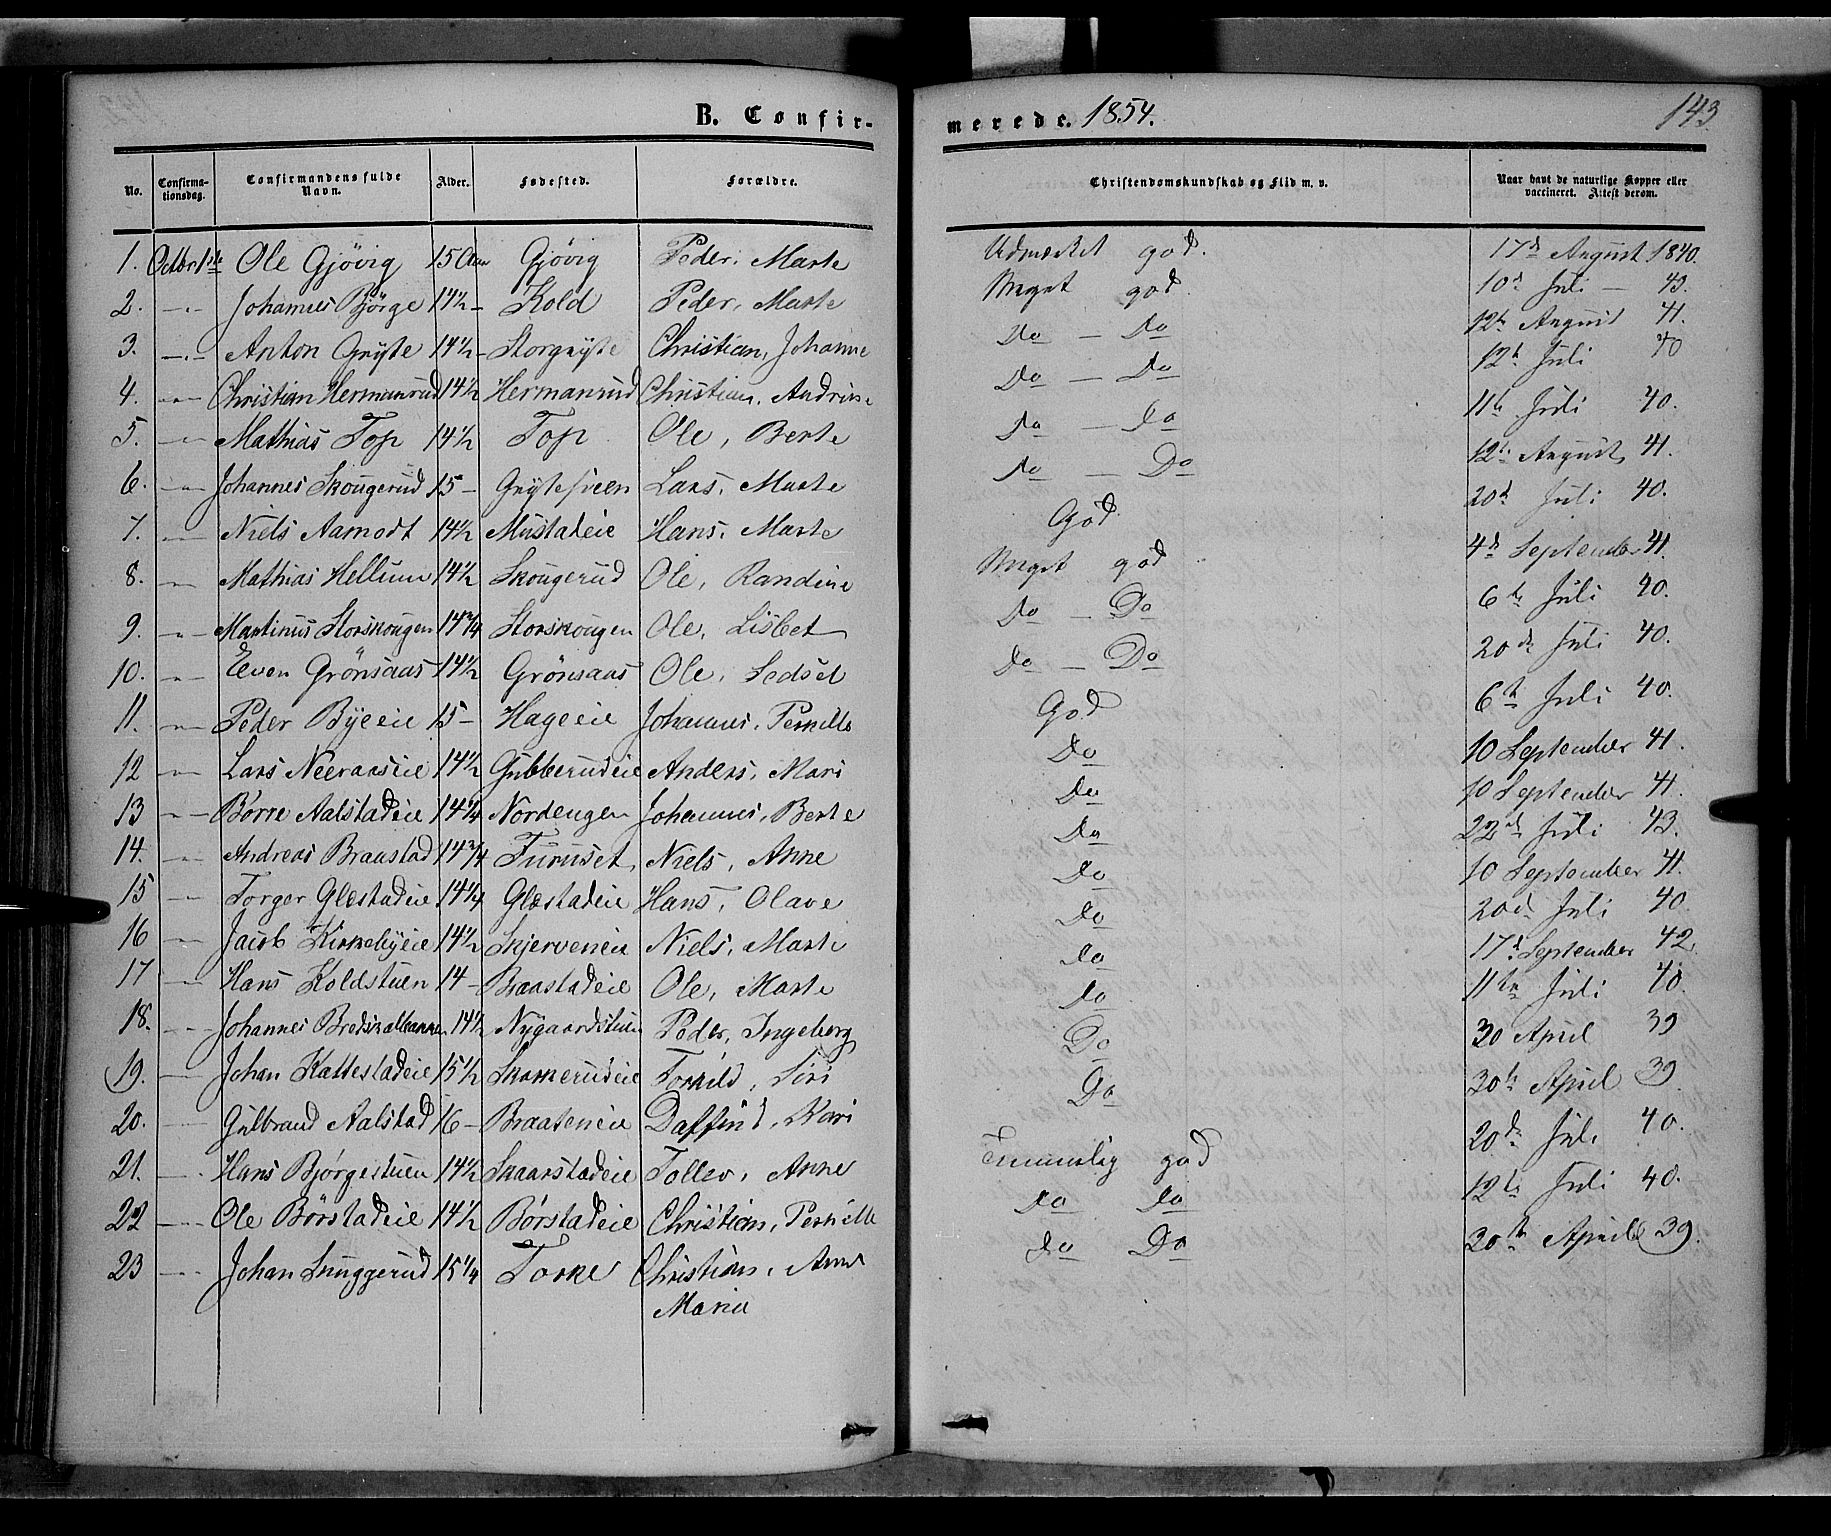 B. Confir-
merede. 1854.
143.
No.
Confirma-
tionsdag.
Confirmandens fulde
Navn.
Alder.
Fødested.
Forældre.
Christendomskundskab og Flid m. v.
Naar havt de naturlige Kopper eller
vaccineret. Attest derom.
1. Octbr 1ste Ole Gjövig 15 Aar Gjövig Peder, Marte Udmærket god. 17de August 1840.
2. -"- Johannes Bjørge 14½ - Kold Peder, Marte Meget god. 10de Juli - 43.
3. -"- Anton Gryte 14½ - Storgryte Christian, Johanne Do - Do 12te August 41.
4. -"- Christian Hermanrud 14½ Hermanrud Christian, Andrine Do - Do 12te Juli 40
5. -"- Mathias Top 14½ Top Ole, Berte Do - Do 11te Juli 40.
6. -"- Johannes Skougerud 15 - Grytesveen Lars, Marte Do - Do 12te August 41.
7. -"- Niels Aamodt 14½ Mustadeie Hans, Marte God 20de Juli 40.
8. -"- Mathias Hellum 14½ Skougerud Ole, Randine Meget god 4de September 41.
9. -"- Martinus Storskougen 14¾ Storskougen Ole, Lisbet Do - Do 6te Juli 40.
10. -"- Even Grönsaas 14½ Grönsaas Ole, Sedsel Do - Do 20de Juli 40.
11. -"- Peder Byeeie 15 - Hageeie Johannes, Pernille God 6te Juli 40.
12 -"- Lars Neeraaseie 14½ Gubberudeie Anders, Mari Do 10 September 41.
13 -"- Børre Aalstadeie 14¼ Nordengen Johannes, Berte Do 10 September 41.
14. -"- Andreas Braastad 14¾ Furuset Niels, Anne Do 22de Juli 43.
15 -"- Torger Glæstadeie 14¼ Glæstadeie Hans, Olave Do 10 September 41.
16 -"- Jacob Kirkebyeie 14½ Skjerveneie Niels, Marte Do 20de Juli 40
17 -"- Hans Koldstuen 14 - Braastadeie Ole, Marte Do 17de September 42
18. -"- Johannes 14½ Nygaardstuen Peder, Ingeborg Do 11te Juli 40.
19. -"- Johan Kattestadeie 15½ Skakkerudeie Torkild, Siri Do 30 April 39
20. -"- Gulbrand Aalstad 16 - Braateneie Daffind, Kari Do 30te April 39.
21. -"- Hans Bjørgestuen 14½ Skaarstadeie Tollev, Anne Temmelig god 20de Juli 40.
22 -"- Ole Børstadeie 14½ Børstadeie Christian, Pernille Do Do 12te Juli 40.
23 -"- Johan Snuggerud 15¼ Torke Christian, Anne Do Do 30te April 39.
Maria